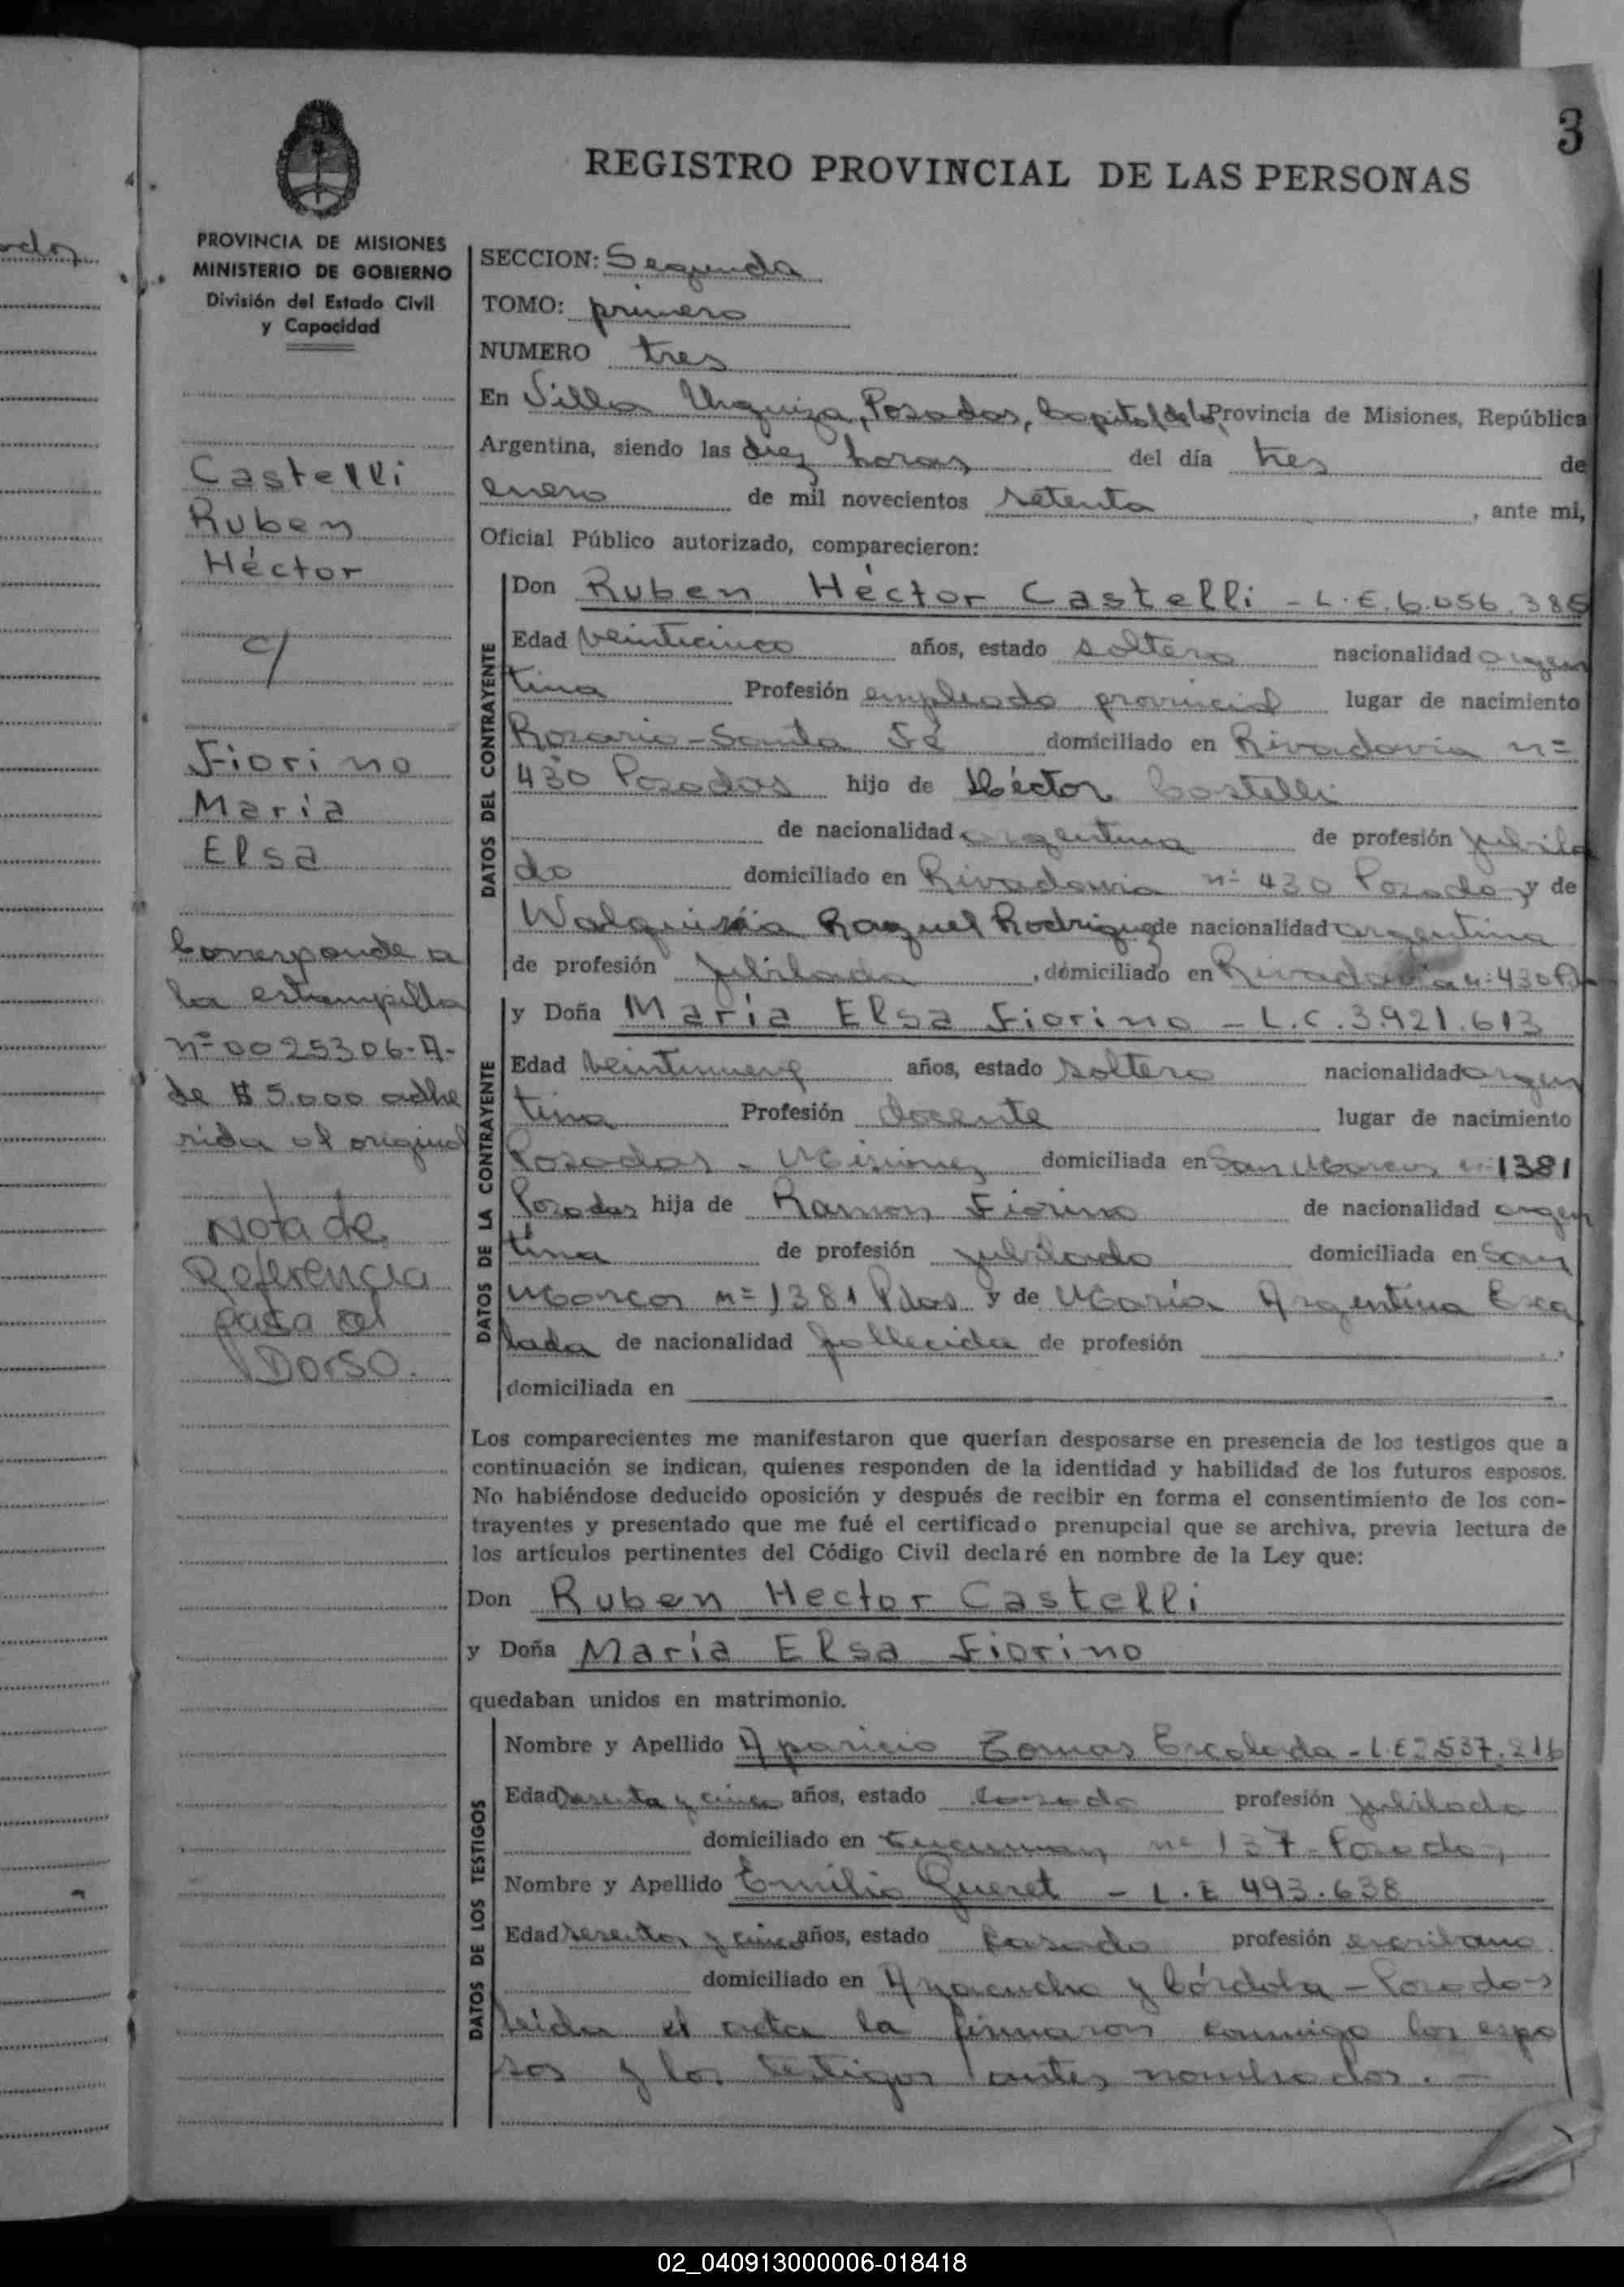 3
REGISTRO PROVINCIAL DE LAS PERSONAS
PROVINCIA DE MISIONES
MINISTERIO DE GOBIERNO
División del Estado Civil
y Capacidad
Castelli
Ruben
Héctor
c/
Fiorino
Maria
Elsa
Corresponde a
la estampilla
nº 0025306-A-
de $ 5.000 adhe
rida al original
Nota de
Referencia
pasa al
Dorso.
SECCION: Segunda
TOMO: primero
NUMERO tres
En Villa Urquiza, Posadas, Capital de la Provincia de Misiones, República
Argentina, siendo las diez horas del día tres de
enero de mil novecientos setenta, ante mi,
Oficial Público autorizado, comparecieron:
DATOS DEL CONTRAYENTE
Don Ruben Héctor Castelli - L.E. 6.056.386
Edad veinticinco años, estado soltero nacionalidad argen
tina Profesión empleado provincial lugar de nacimiento
Rosario - Santa Fé domiciliado en Rivadavia nº
430 Posadas hijo de Héctor Castelli
de nacionalidad argentina de profesión jubila
do domiciliado en Rivadavia nº 430 Posadas y de
Raquel Rodriguez de nacionalidad argentina
de profesión jubilada, domiciliado en Rivadavia nº 430
DATOS DE LA CONTRAYENTE
y Doña María Elsa Fiorino - L.C. 3.921.613
Edad veintinueve años, estado soltera nacionalidad argen
tina Profesión docente lugar de nacimiento
Posadas - Misiones domiciliada en San Marcos nº 1381
Posadas hija de Ramon Fiorino de nacionalidad argen
tina de profesión jubilado domiciliada en San
Marcos nº 1381 Pdas y de María Argentina Esca
lada de nacionalidad fallecida de profesión
domiciliada en
Los comparecientes me manifestaron que querían desposarse en presencia de los testigos que a
continuación se indican, quienes responden de la identidad y habilidad de los futuros esposos.
No habiéndose deducido oposición y después de recibir en forma el consentimiento de los con-
trayentes y presentado que me fué el certificado prenupcial que se archiva, previa lectura de
los artículos pertinentes del Código Civil declaré en nombre de la Ley que:
Don Ruben Hector Castelli
y Doña María Elsa Fiorino
quedaban unidos en matrimonio.
DATOS DE LOS TESTIGOS
Nombre y Apellido Aparicio Tomas Escalada - L.E 2.537.216
Edad sesenta y cinco años, estado casado profesión jubilado
domiciliado en Tucuman nº 137 - Posadas
Nombre y Apellido Emilio Gueret - L.E 493.638
Edad sesenta y cinco años, estado casado profesión escribano
domiciliado en Ayacucho y Córdoba - Posadas
leída el acta la firmaron conmigo los espo
sos y los testigos antes nombrados. -
02_040913000006-018418